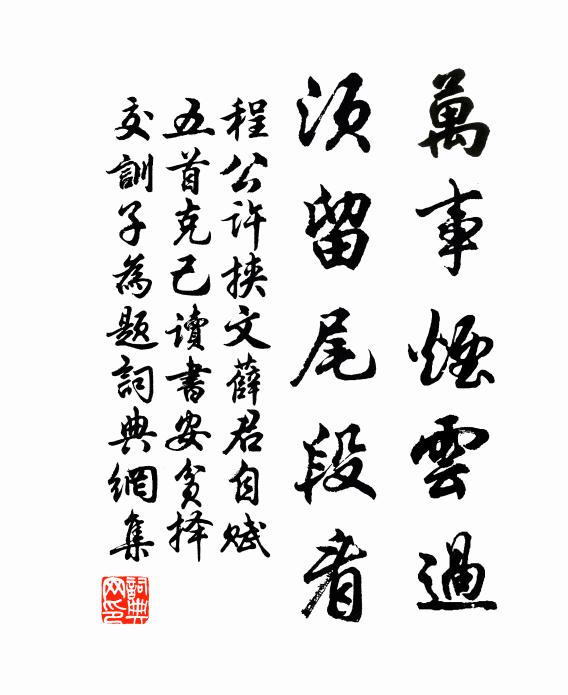 萬事煙雲過
須留尾段看
程公許挾文薛君自賦
五首克己讀書安貧择
交訓子為題詞典網集